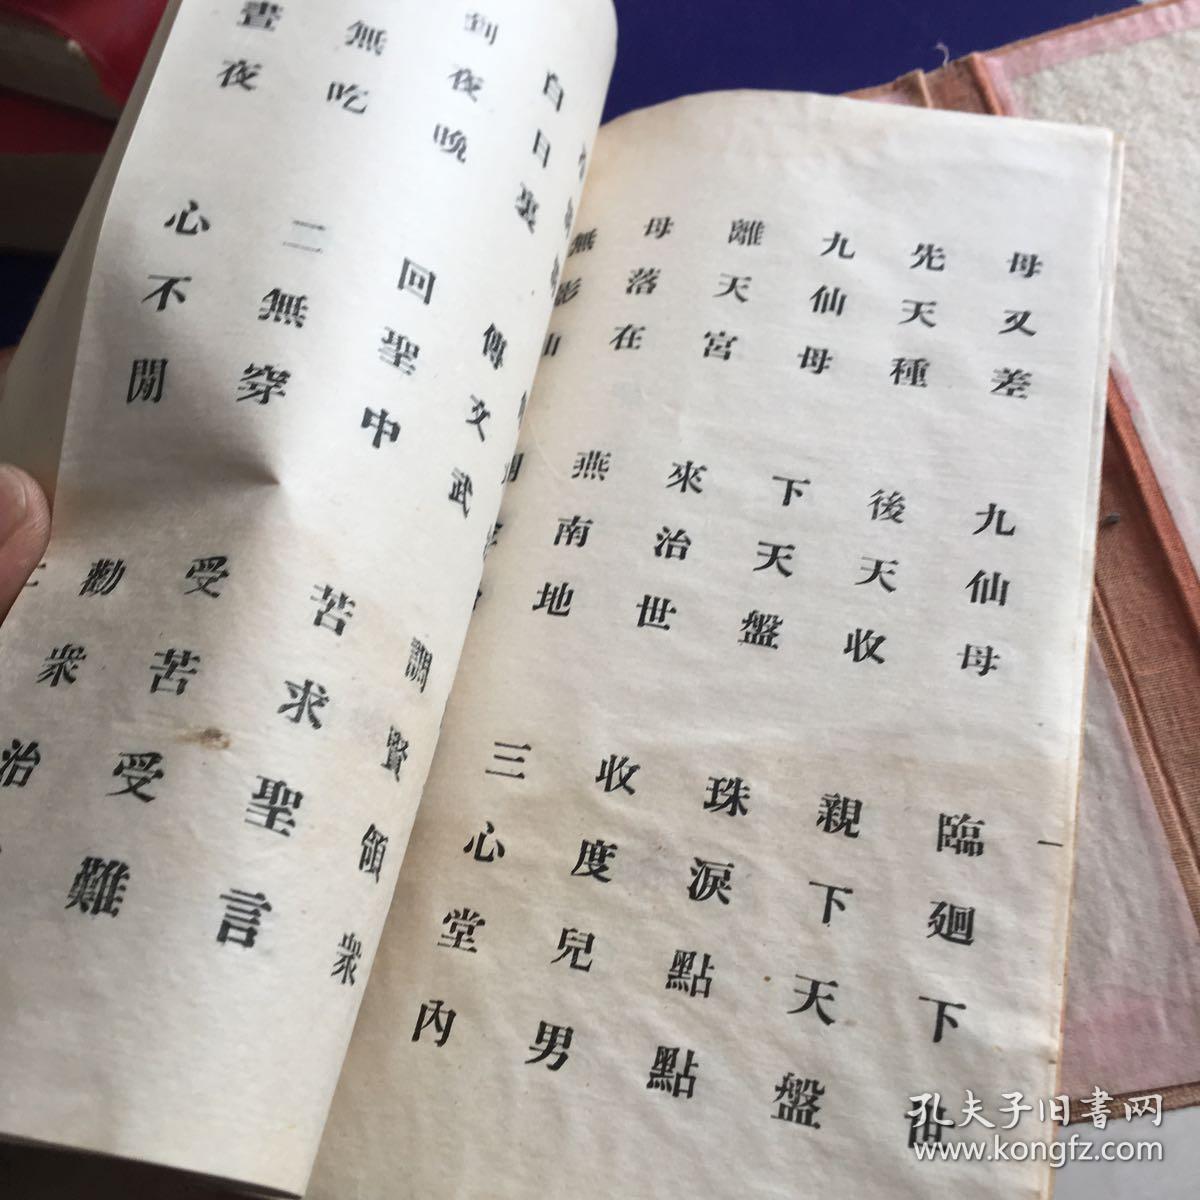 母又差 九仙母 臨廻下
先天種 後天收 親下天盤
九仙母 下天盤 珠淚點點
離天宮 來治世 收度兒男
母落在 燕南地 三心堂內
無影山
白日裏 傳文武 調賢領衆
到夜晚 回聖中 苦求聖言
無吃 二無穿 受苦受難
晝夜 心不閒 勸衆治
孔夫子旧書网
www.kongfz.com